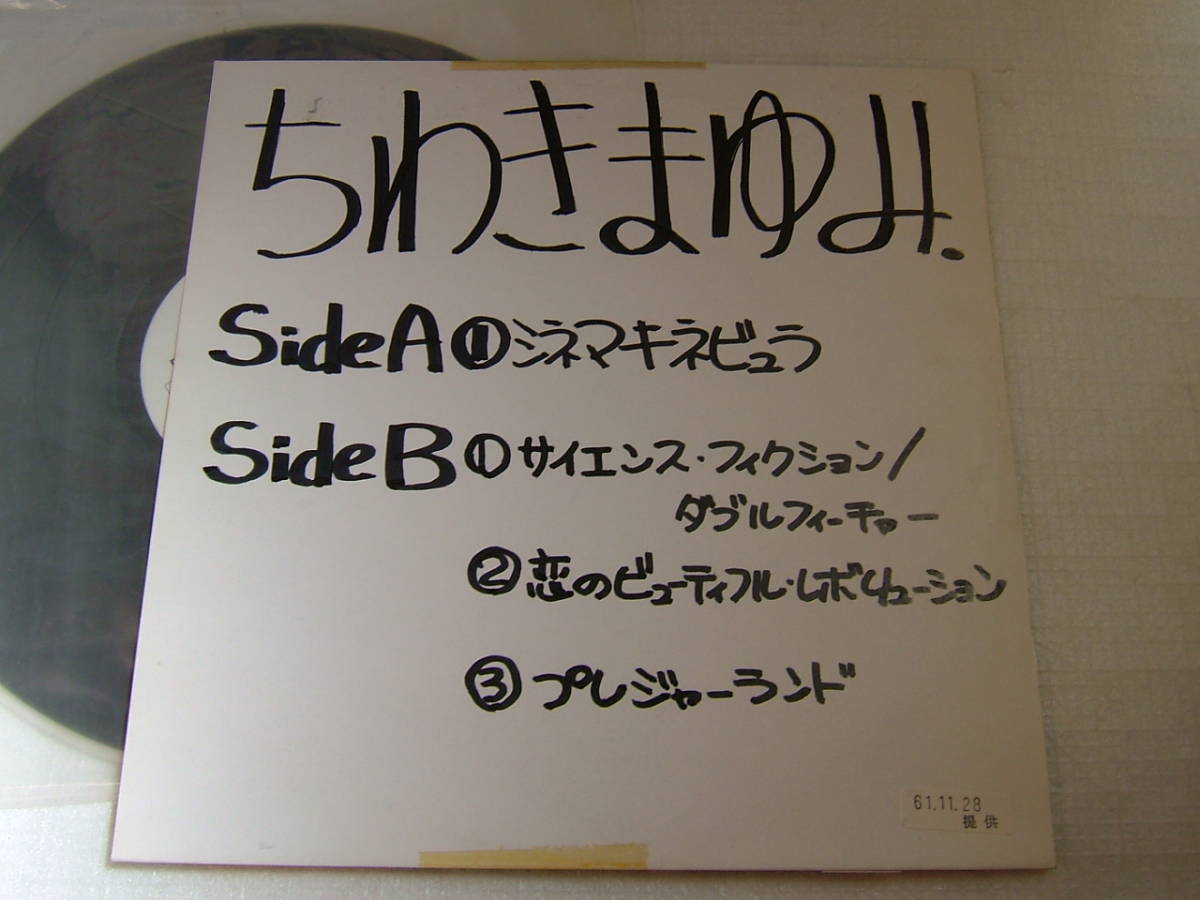 ちわきまゆみ.
Side A ①シネマキネビュラ
Side B ①サイエンス・フィクション/
ダブルフィーチャー
②恋のビューティフル・レボリューション
③プレジャーランド
61.11.28
提供